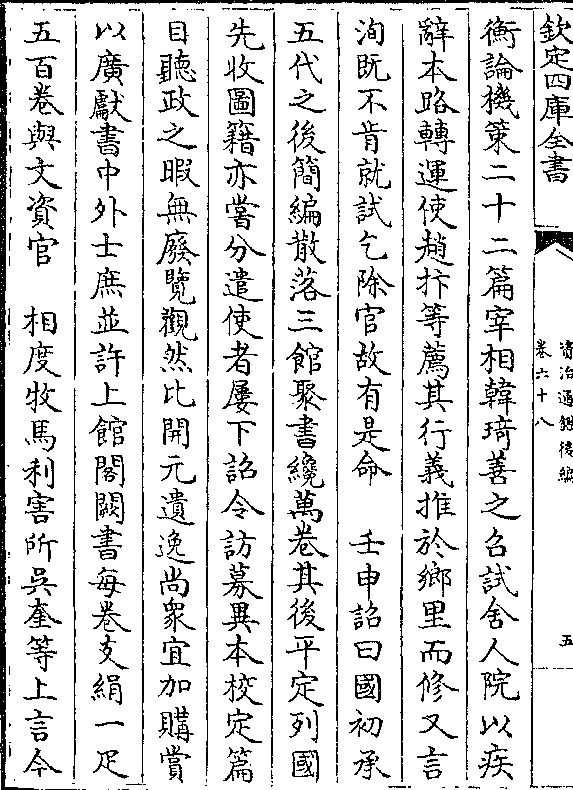 欽定四庫全書
資治通鑑後編
卷六十八
五
衡論機策二十二篇宰相韓琦善之召試舍人院以疾
辭本路轉運使趙抃等薦其行義推於鄉里而修又言
洵既不肯就試乞除官故有是命　壬申詔曰國初承
五代之後簡編散落三館聚書纔萬卷其後平定列國
先收圖籍亦嘗分遣使者屢下詔令訪募異本校定篇
目聽政之暇無廢覽觀然比開元遺逸尚衆宜加購賞
以廣獻書中外士庶並許上館閣闕書每卷支絹一疋
五百卷與文資官　相度牧馬利害所吳奎等上言今